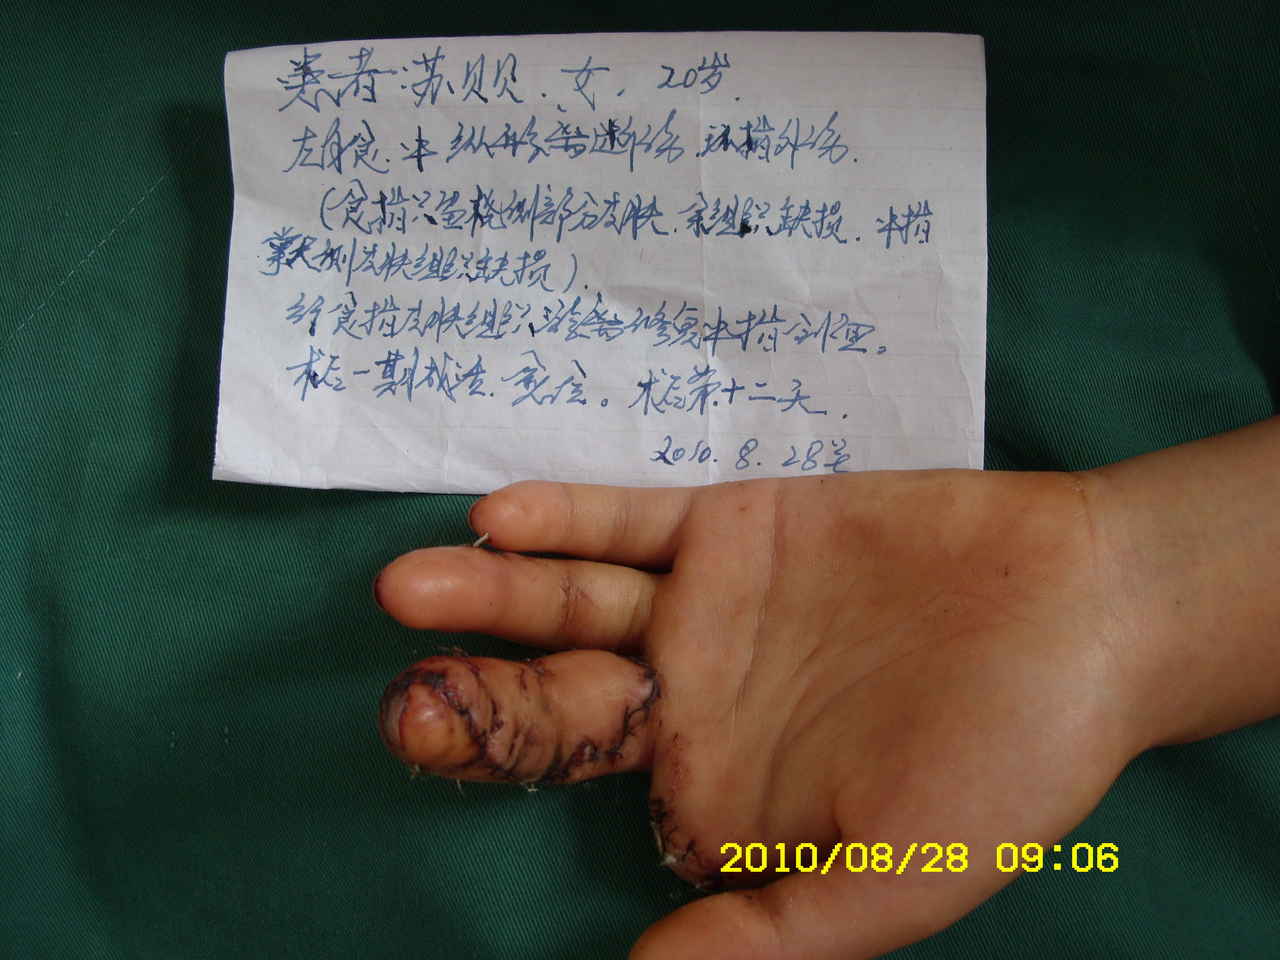 患者:苏贝贝.女.20岁.
左食.中纵形离断伤.环指外伤.
(食指只留桡侧部分皮肤.余组织缺损.中指
掌尺侧皮肤组织缺损).
给食指皮肤组织修复中指创面。
术后一期成活.愈合。术后第十二天.
2010.8.28
2010/08/28 09:06